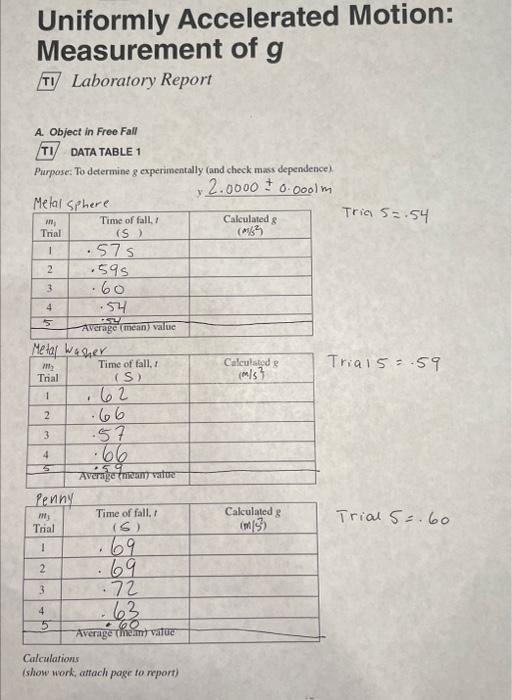 Uniformly Accelerated Motion:
Measurement of g
TI Laboratory Report
A. Object in Free Fall
TI DATA TABLE 1
Purpose: To determine g experimentally (and check mass dependence).
y 2.0000 ± 0.0001m
Metal sphere
m₁ Trial Time of fall, t (S) Calculated g (m/s²)
Trial 5=.54
1 .57s
2 .59s
3 .60
4 .54
5 .54
Average (mean) value
Metal Washer
m₂ Trial Time of fall, t (S) Calculated g (m/s²)
Trial 5 = .59
1 .62
2 .66
3 .57
4 .66
5 .59
Average (mean) value
Penny
m₃ Trial Time of fall, t (S) Calculated g (m/s²)
Trial 5=.60
1 .69
2 .69
3 .72
4 .63
5 .60
Average (mean) value
Calculations
(show work, attach page to report)